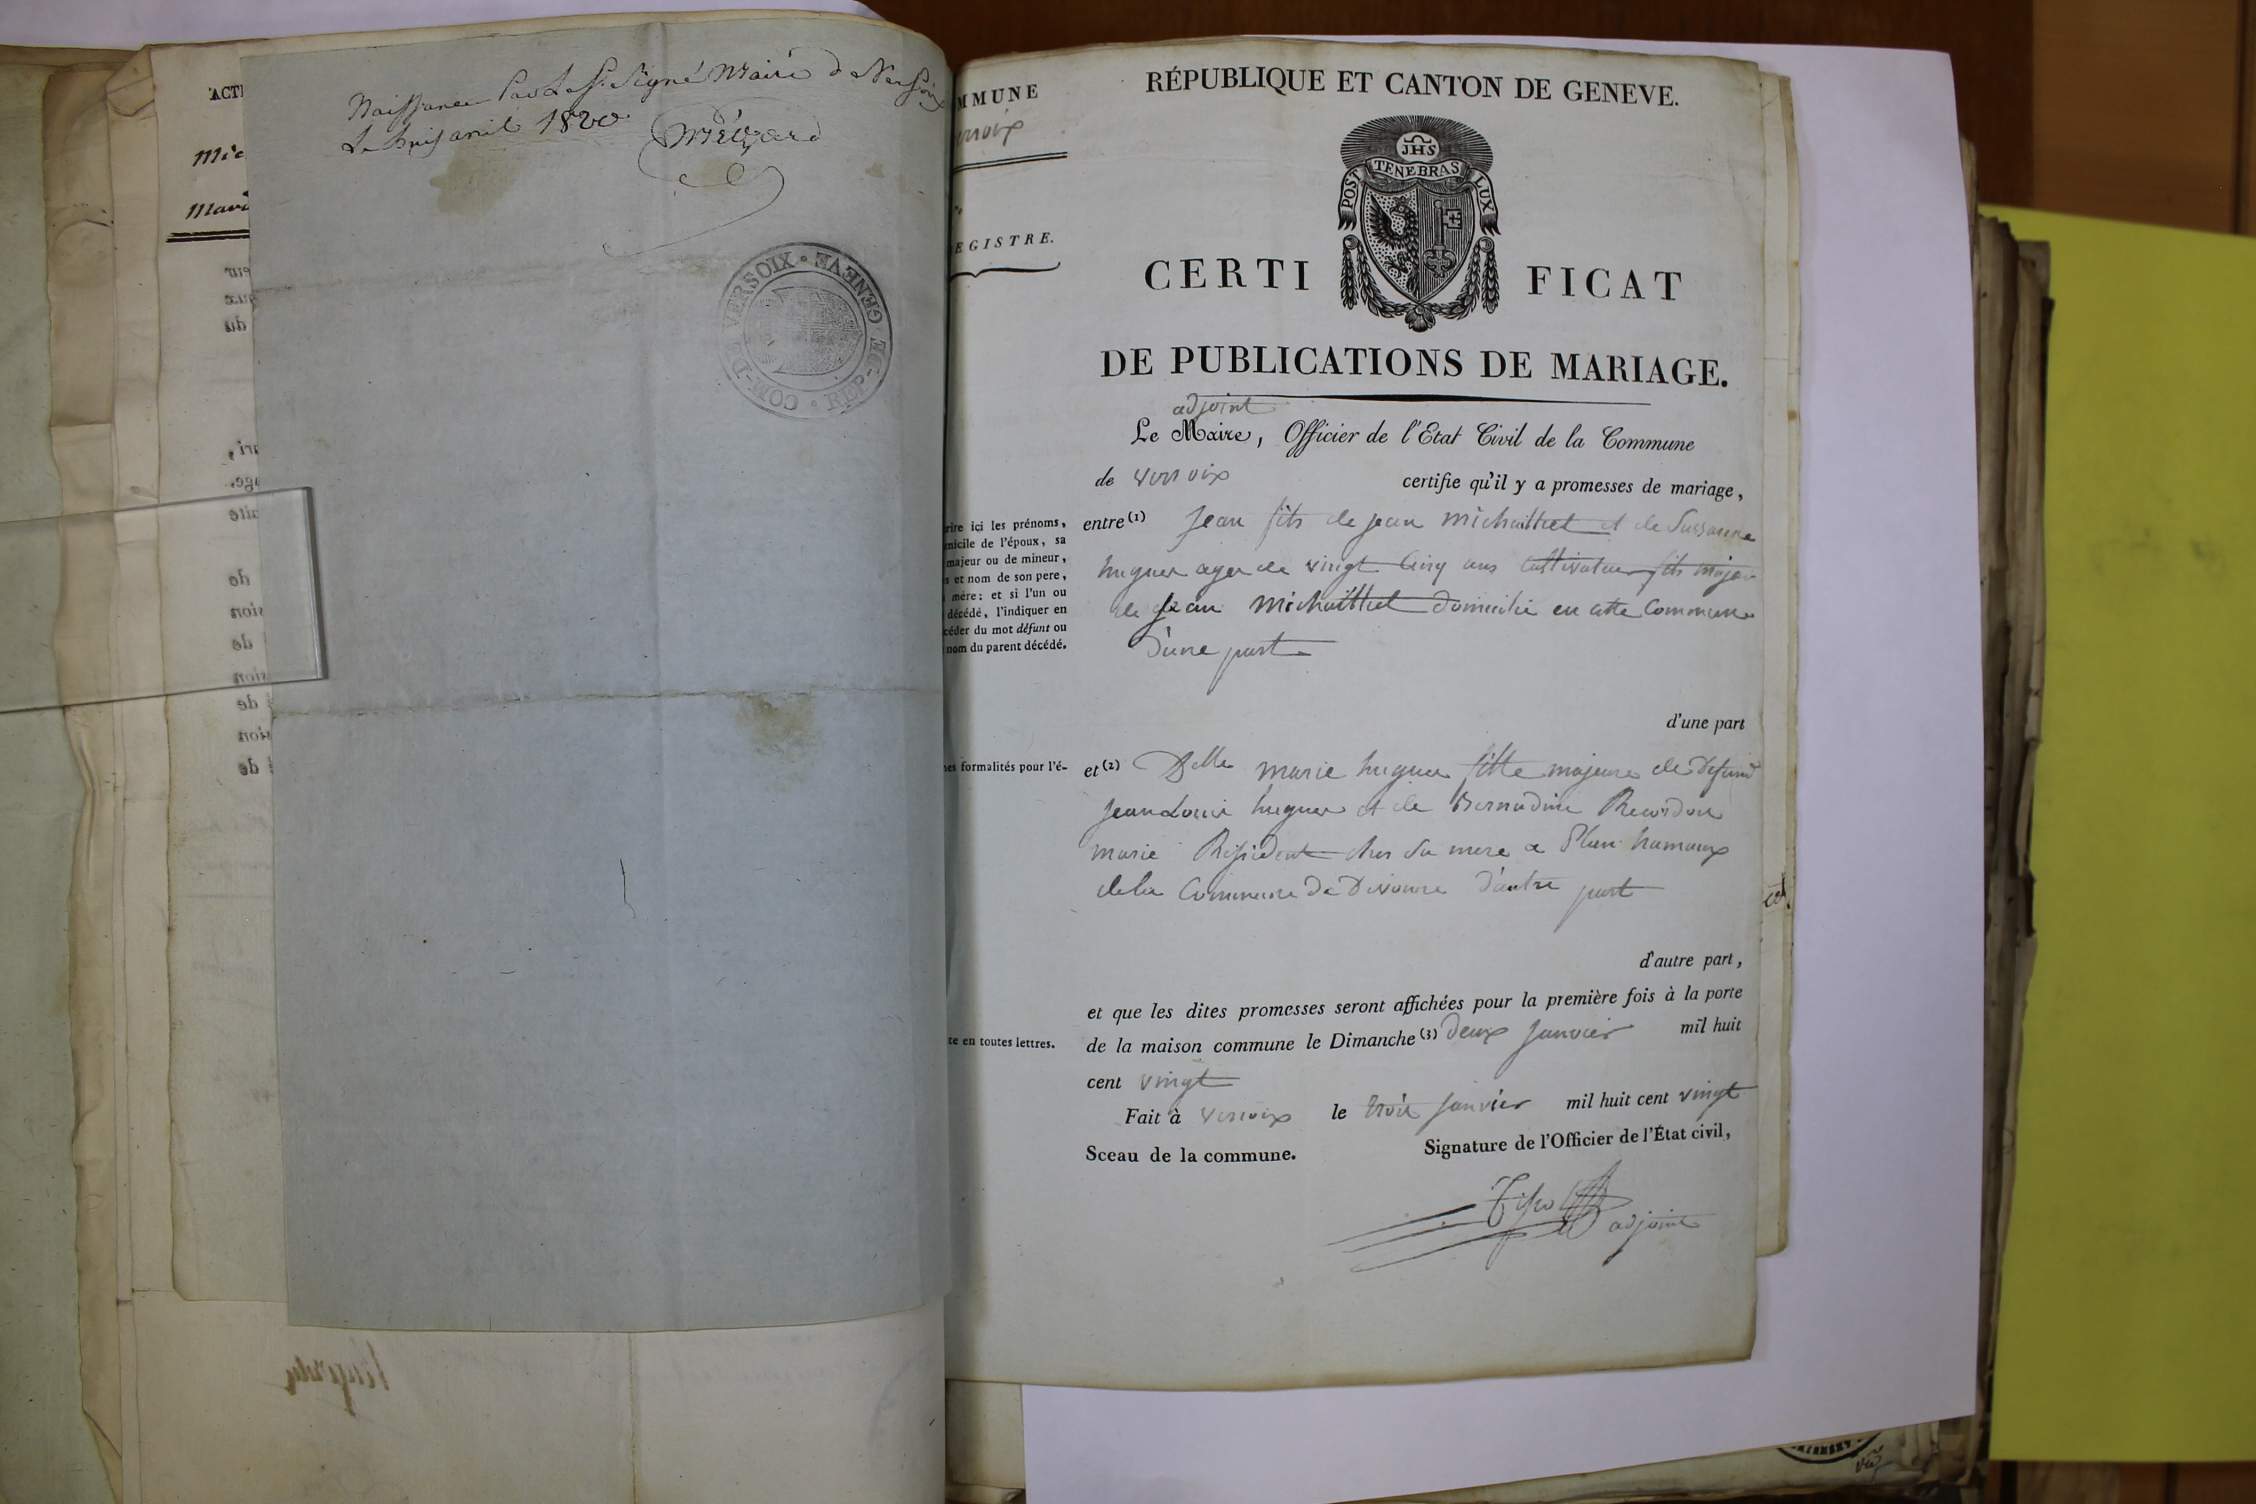 Naissance Par Le Sr. Signé Maire de Versoix
Le huit avril 1820
COM. DE VERSOIX • REP. ET C. GENEVE
ACTE
Mic
Mari
MMUNE
ersoix
EGISTRE.
RÉPUBLIQUE ET CANTON DE GENEVE.
JHS
POST TENEBRAS LUX
CERTIFICAT
DE PUBLICATIONS DE MARIAGE.
adjoint
Le Maire, Officier de l'Etat Civil de la Commune
de versoix certifie qu'il y a promesses de mariage,
rire ici les prénoms,
micile de l'époux, sa
majeur ou de mineur,
s et nom de son pere,
mère: et si l'un ou
décédé, l'indiquer en
céder du mot défunt ou
nom du parent décédé.
entre (1) Jean fils de jean michaillet et de Sussanne
huguer ager de vingt Cinq ans Cultivateur fils majeur
de jean michaillet domicilié en cette Commune
d'une part
d'une part
nes formalités pour l'é-
et (2) Delle marie huguer fille majeure de Defunt
jean Louis huguer et de Bernardine Recordon
marie Residente ches sa mere a hamaux
de la Commune de Divonne d'autre part
d'autre part,
et que les dites promesses seront affichées pour la première fois à la porte
de la maison commune le Dimanche (3) deux janvier mil huit
te en toutes lettres.
cent vingt
Fait à versoix le trois janvier mil huit cent vingt
Sceau de la commune.
Signature de l'Officier de l'État civil,
adjoint